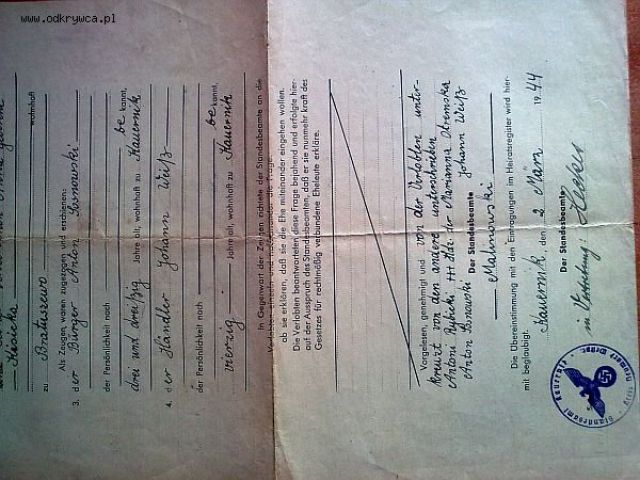 www.odkrywca.pl
zu Bratuszewo wohnhaft
Als Zeugen waren zugezogen und erschienen:
3. der Bürger Anton Sosnowski
der Persönlichkeit nach be kannt,
drei und dreißig Jahre alt, wohnhaft zu Kauernik
4. der Händler Johann Weiß
der Persönlichkeit nach be kannt,
vierzig Jahre alt, wohnhaft zu Kauernik
In Gegenwart der Zeugen richtete der Standesbeamte an die
Verlobten einzeln und nacheinander die Frage,
ob sie erklären, daß sie die Ehe miteinander eingehen wollen.
Die Verlobten beantworteten diese Frage bejahend und erfolgte hier-
auf der Ausspruch des Standesbeamten, daß er sie nunmehr kraft des
Gesetzes für rechtmäßig verbundene Eheleute erkläre.
Vorgelesen, genehmigt und von der Verlobten unter-
kreuzt von den andere unterschrieben
Antoni Rybicki +++ Hdz. der Marianna
Anton Sosnowski Johann Weiß
Der Standesbeamte
Malinowski
Die Übereinstimmung mit den Eintragungen im Heiratsregister wird hier-
mit beglaubigt.
Kauernik, den 2. März 1944
Der Standesbeamte
in Vertretung:
Standesamt Kauernik